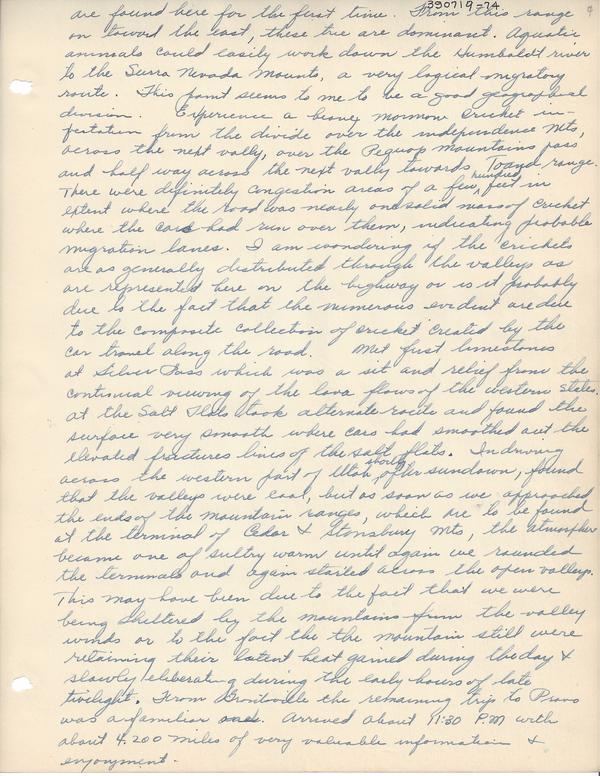 330719-74
are found here for the first time. From this range
on toward the east, these tree are dominant. Aquatic
animals could easily work down the Humboldt river
to the Surra Nevada Mounts, a very logical migratory
route. This point seems to me to be a good geographical
division. Experience a heavy mormon cricket in-
festation from the divide over the independence Mts,
across the next vally, over the Pequop Mountains pass
and half way across the next vally towards Toano range.
There were definitely congestion areas of a few hundred feet in
extent where the road was nearly one solid mass of cricket
where the cars had run over them, indicating probable
migration lanes. I am wondering if the crickets
are as generally distributed through the valleys as
are represented here on the highway or is it probably
due to the fact that the numerous evident are due
to the composite collection of cricket created by the
car travel along the road. Met first limestones
at Silver Pass which was a sit and relief from the
continual viewing of the lava flows of the western states.
At the Salt Flats took alternate route and found the
surface very smooth where cars had smoothed out the
elevated fractures lines of the salt flats. In driving
across the western part of Utah, shortly after sundown, found
that the valleys were cool, but as soon as we approached
the ends of the mountain ranges, which are to be found
at the terminal of Cedar & Stansbury Mts, the atmosphere
became one of sultry warm until again we rounded
the terminals and again started across the open valleys.
This may have been due to the fact that we were
being sheltered by the mountains from the valley
winds or to the fact the the mountain still were
retaining their latent heat gained during the day &
slowly liberating during the early hours of late
twilight. From the remaining trip to Provo
was a familiar one. Arrived about 11:30 P.M with
about 4,200 miles of very valuable information &
enjoyment.